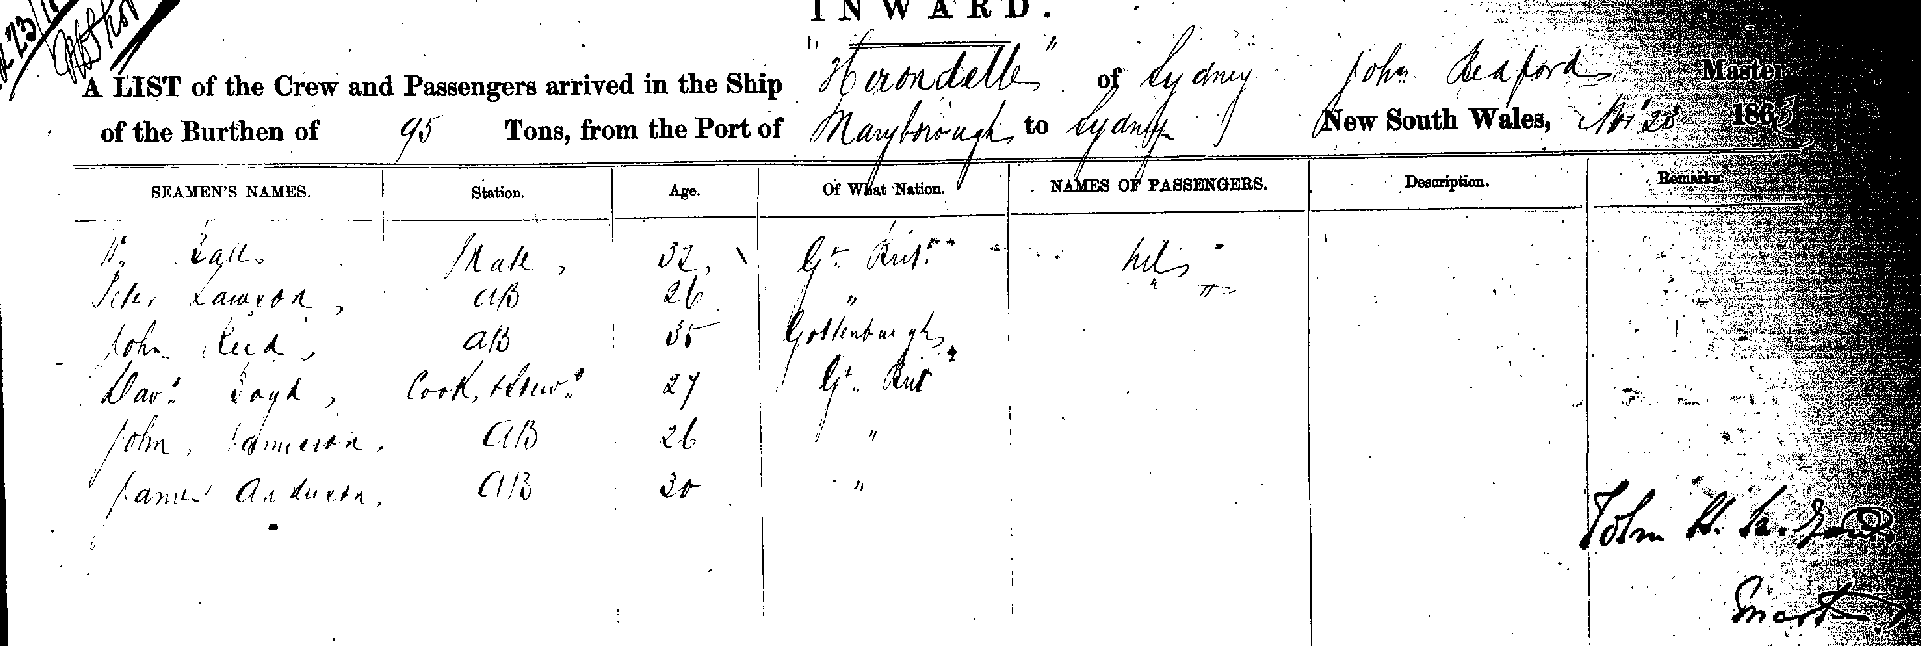 INWARD.
A LIST of the Crew and Passengers arrived in the Ship "Hirondelle" of Sydney John Redford Master
of the Burthen of 95 Tons, from the Port of Maryborough to Sydney New South Wales, Nov 28 1863
SEAMEN'S NAMES. Station. Age. Of What Nation. NAMES OF PASSENGERS. Description. Remarks.
Mate, 32, Gt. Brit. Nil
Peter Lawson, AB 26 "
John Reid, AB 35 Gottenburgh
Davd. Boyd, Cook, & Stewd. 27 Gt. Brit
John Jamieson. AB 26 "
James Anderson. AB 30 "
John
Master